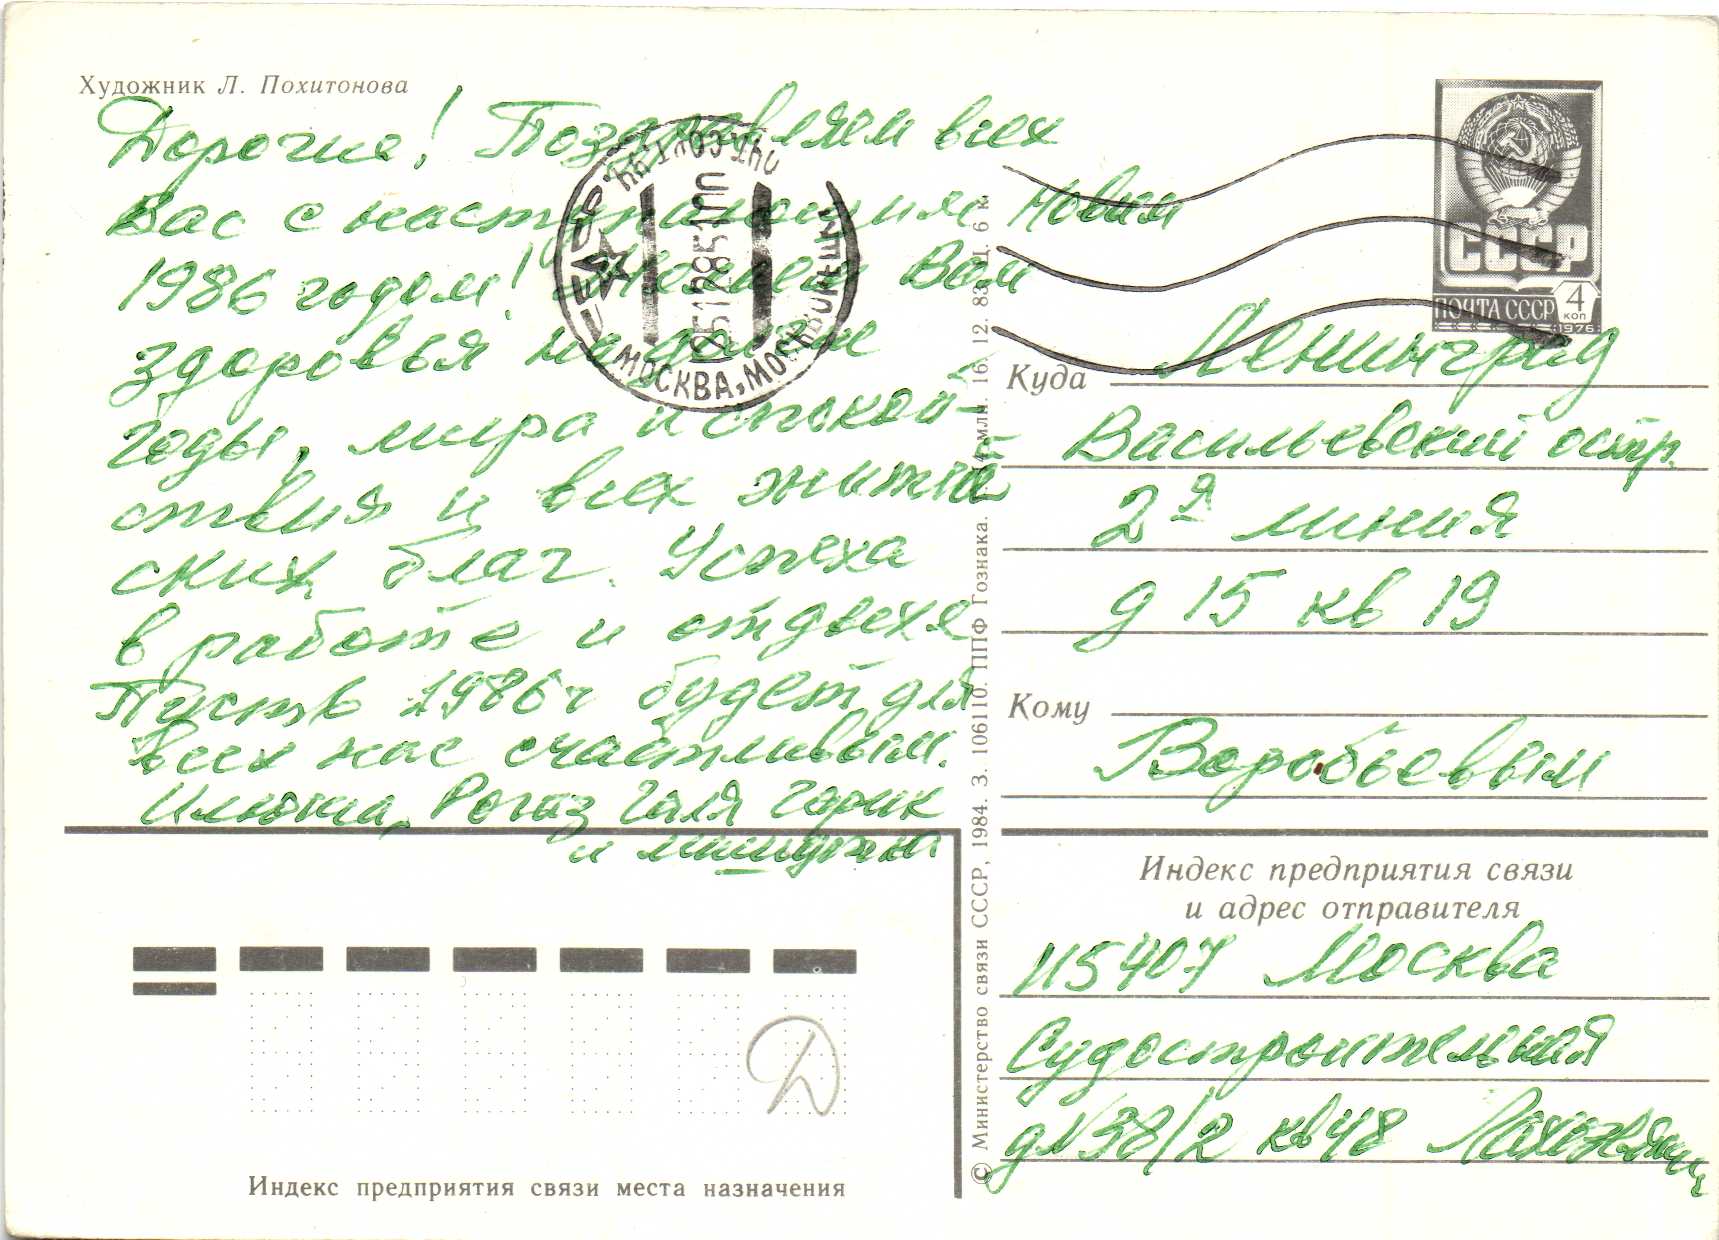 Художник Л. Похитонова
Дорогие! Поздравляем всех
Вас с наступающим Новым
1986 годом! Желаем Вам
здоровья на долгие
годы, мира и спокой-
ствия и всех житей
ских благ. Успеха
в работе и отдыхе
Пусть 1986 г будет для
всех нас счастливым.
Илюша, Рогаз Галя Гарик
и Мишутка
МОСКВА, МОСК
251285
ПОЧТА СССР
СССР
4
коп
1976
Куда Ленинград
Васильевский остр.
2я линия
д 15 кв 19
Кому
Воробьевым
Индекс предприятия связи
и адрес отправителя
115407 Москва
Судостроительная
д№38/2 кв 48
© Министерство связи СССР, 1984. З. 106110. ППФ Гознака. млн. 16. 12. 83 Ц. 6 к.
Д
Индекс предприятия связи места назначения